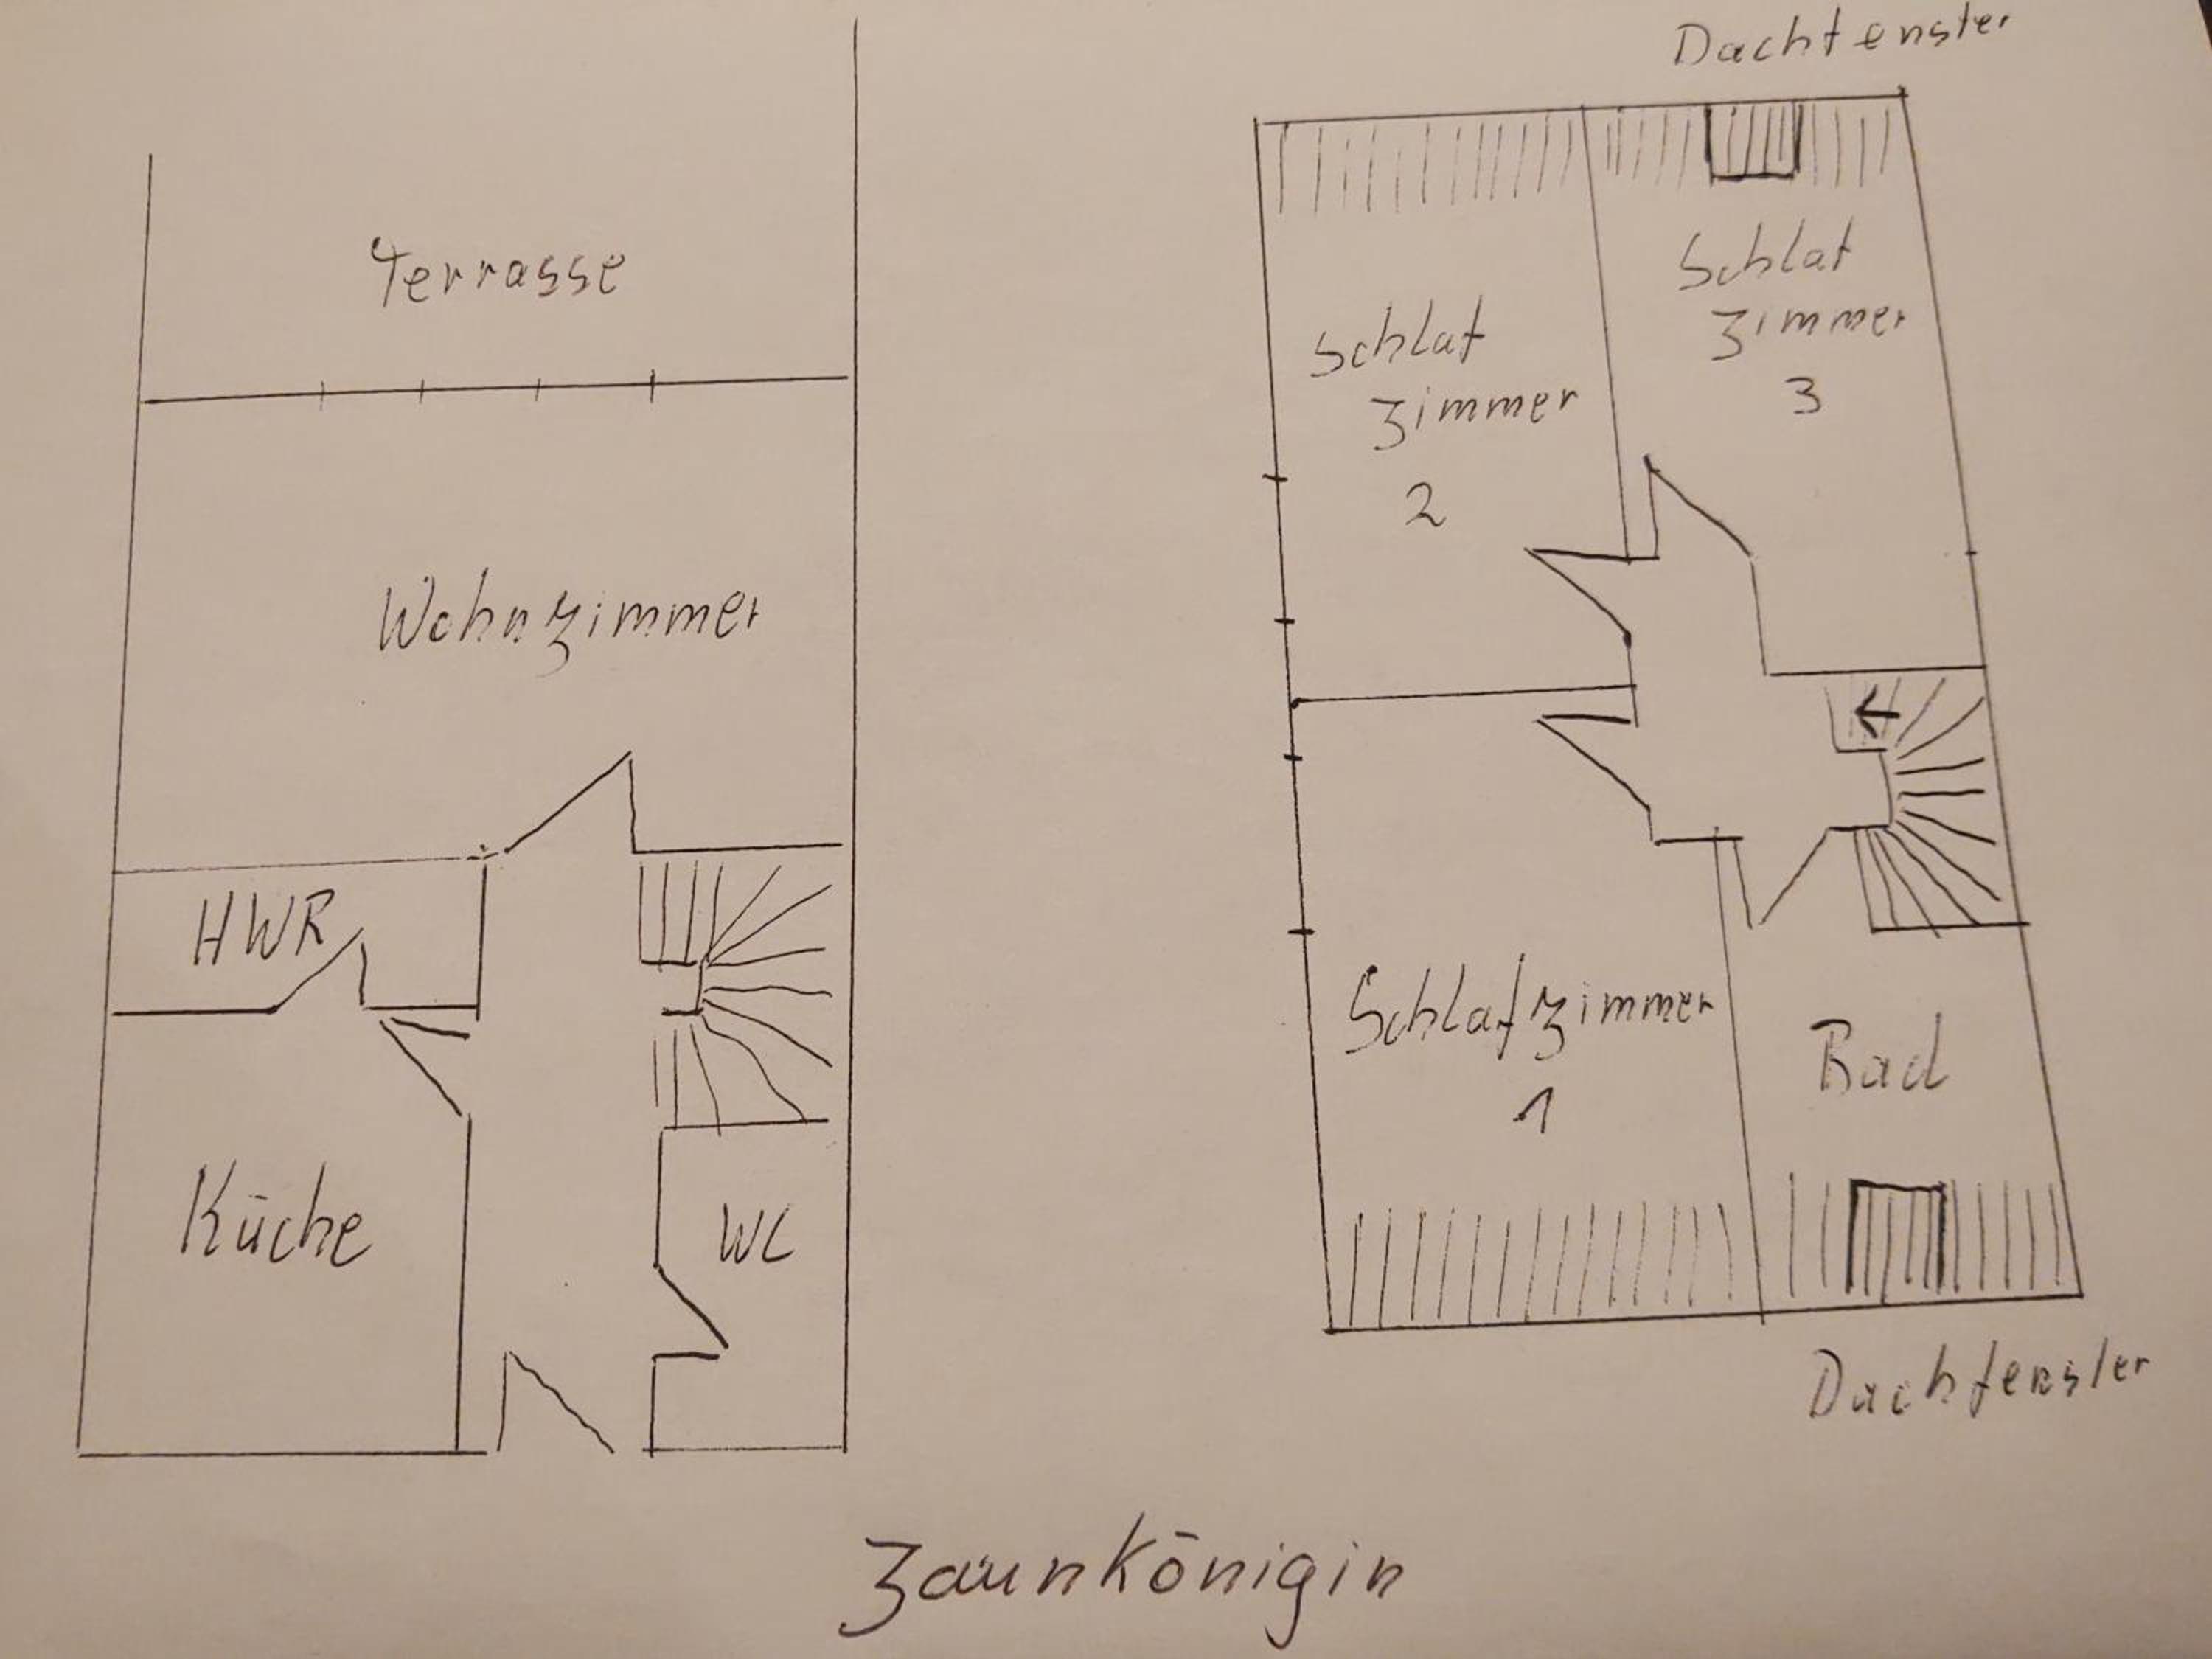 Terrasse
Wohnzimmer
HWR
Küche
WC
Dachfenster
Schlaf
zimmer
2
Schlaf
zimmer
3
Schlafzimmer
1
Bad
Dachfenster
Zaunkönigin